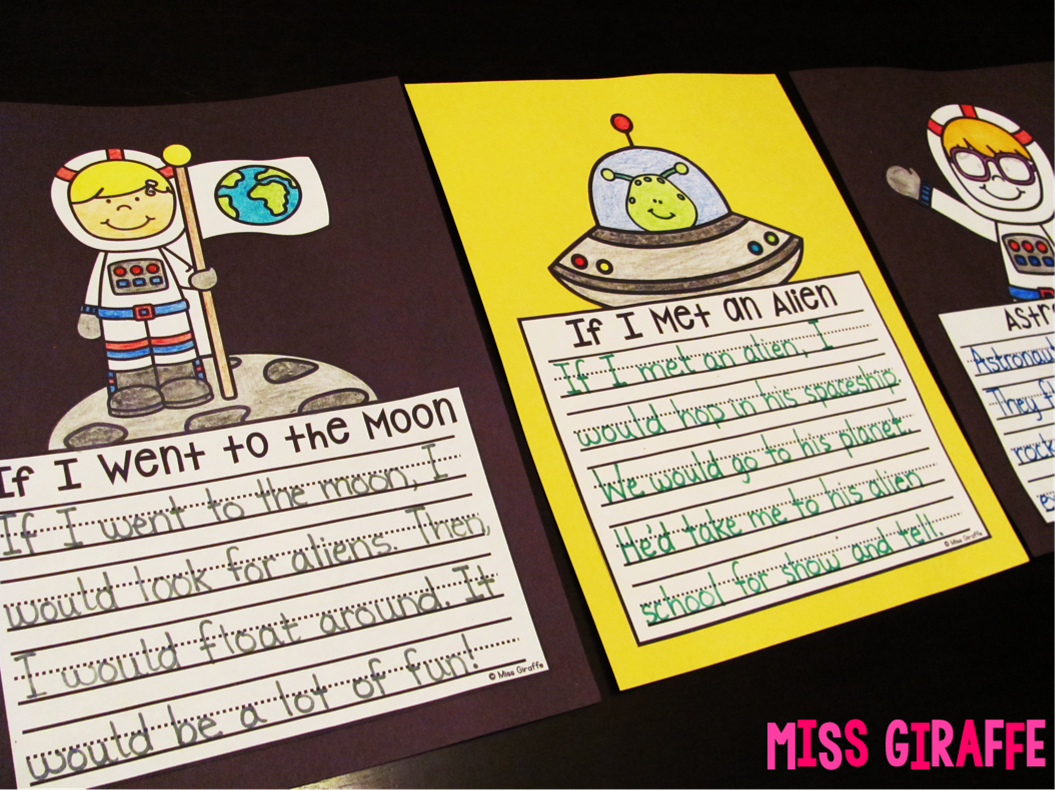 If I Went to the Moon
If I went to the moon, I
would look for aliens. Then,
I would float around. It
would be a lot of fun!
© Miss Giraffe
If I Met an Alien
If I met an alien, I
would hop in his spaceship.
We would go to his planet.
He'd take me to his alien
school for show and tell.
© Miss Giraffe
Astronaut
They
rock
MISS GIRAFFE